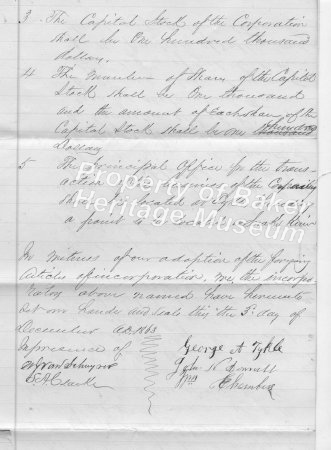 3 The Capital Stock of the Corporation
shall be One hundred thousand
dollars.
4 The number of Shares of the Capital
Stock shall be One thousand
and the amount of Each share of the
Capital Stock shall be one hundred
Dollars
5 The Principal Office for the trans-
action of business of the Company
shall be located at
a point
Property of Baker
Heritage Museum
In witness of our adoption of the foregoing
Articles of incorporation, we, the incorpo-
rators above named have hereunto
set our hands and seals this the 3d day of
December A.D. 1863
In presence of
George A Tykle
John N Bennett
E A Clark
Wm Chambers